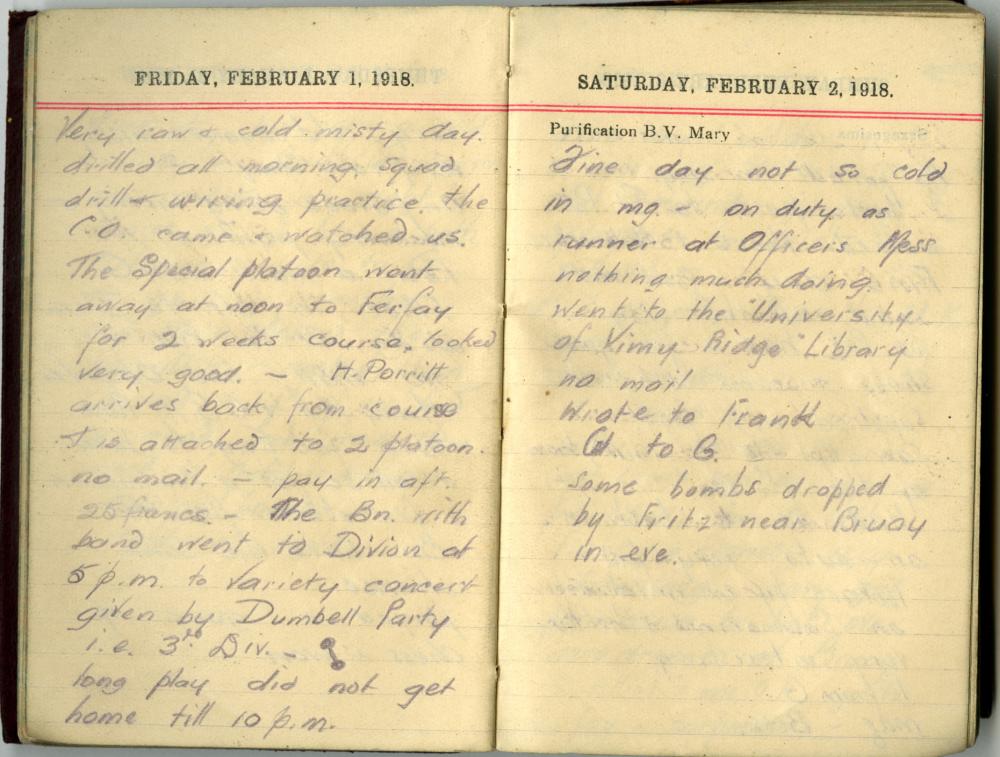 FRIDAY, FEBRUARY 1, 1918.
Very raw & cold misty day.
drilled all morning squad
drill & wiring practice. the
C.O. came & watched us.
The Special platoon went
away at noon to Ferfay
for 2 weeks course, looked
very good. – H. Porritt
arrives back from course
& is attached to 2 platoon.
no mail. – pay in aft.
25 francs. – The Bn. with
band went to Divion at
5 p.m. to variety concert
given by Dumbell Party
i.e. 3rd Div. –
long play did not get
home till 10 p.m.
SATURDAY, FEBRUARY 2, 1918.
Purification B.V. Mary
Fine day not so cold
in mg. – on duty as
runner at Officers Mess
nothing much doing.
went to the "University
of Vimy Ridge" Library
no mail
Wrote to Frank
to G.
some bombs dropped
by Fritz near Bruay
in eve.